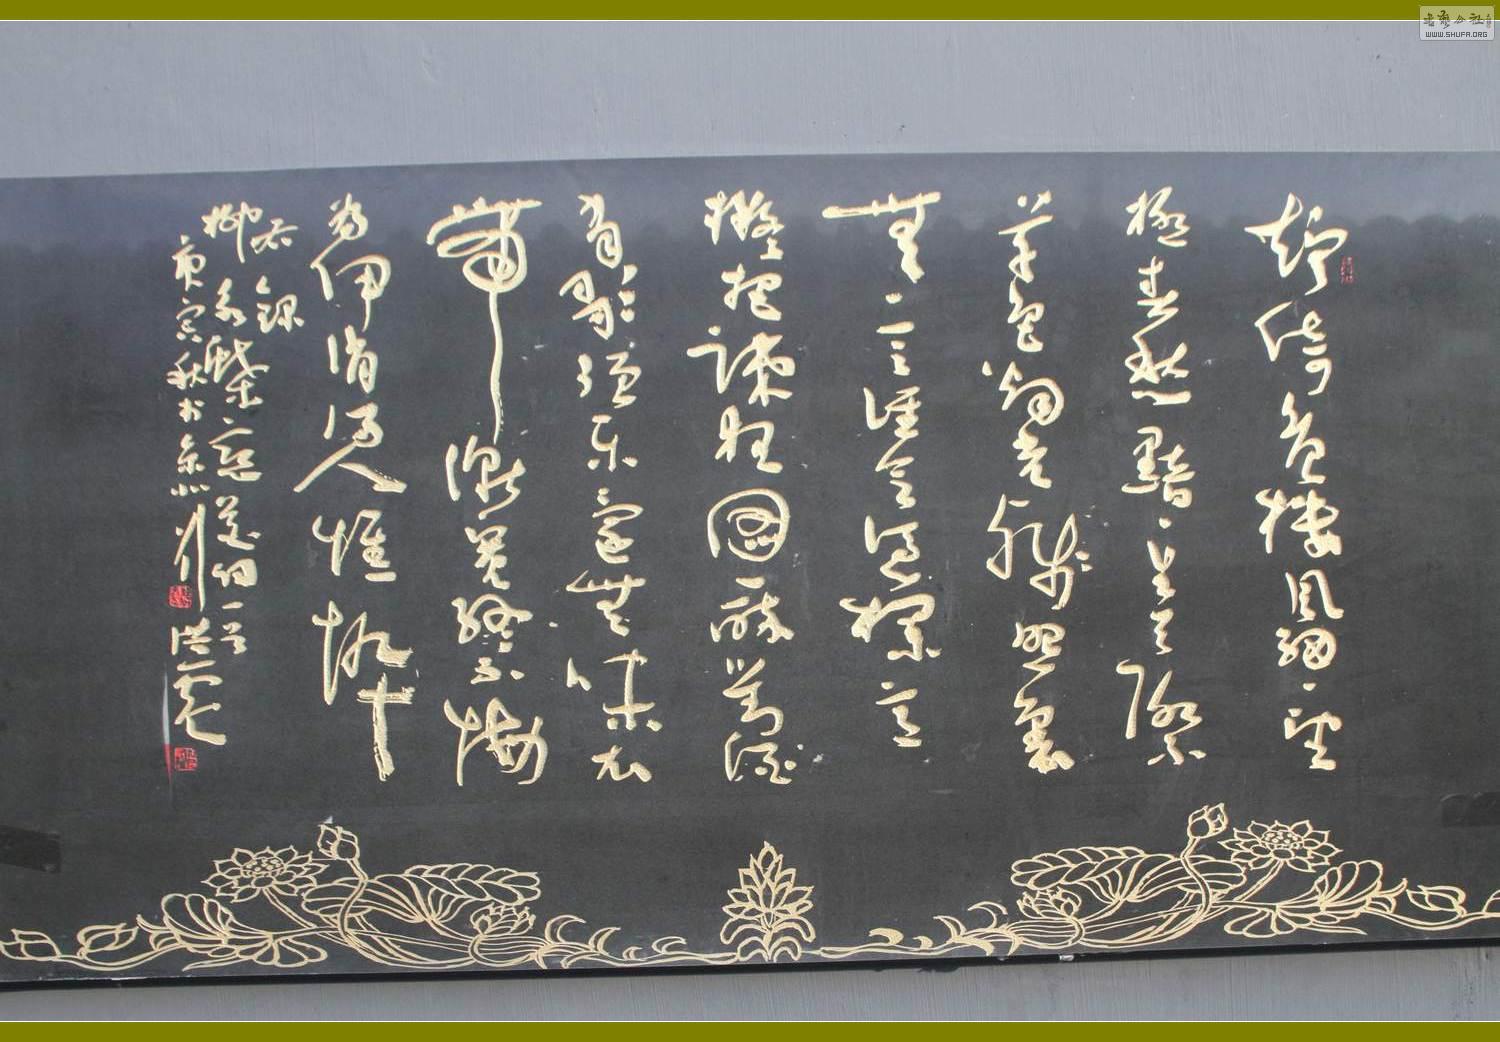 书艺公社
WWW.SHUFA.ORG
竚倚危樓風細細望
極春愁黯黯生天際
草色煙光殘照裏
無言誰會憑欄意
擬把疎狂圖一醉對酒
當歌強樂還無味衣
帶漸寬終不悔
為伊消得人憔悴
右錄
柳永蝶戀花詞一首
庚寅秋於京